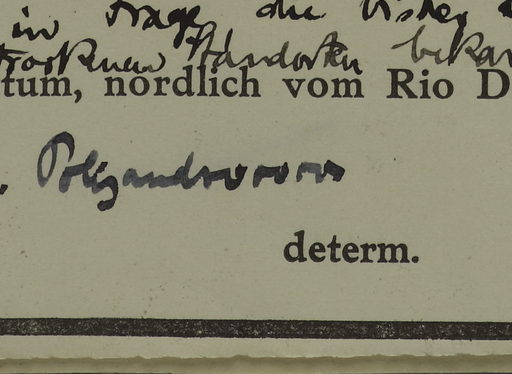 in Frage die bisher
trockenen Standorten bekan
tum, nordlich vom Rio D
determ.